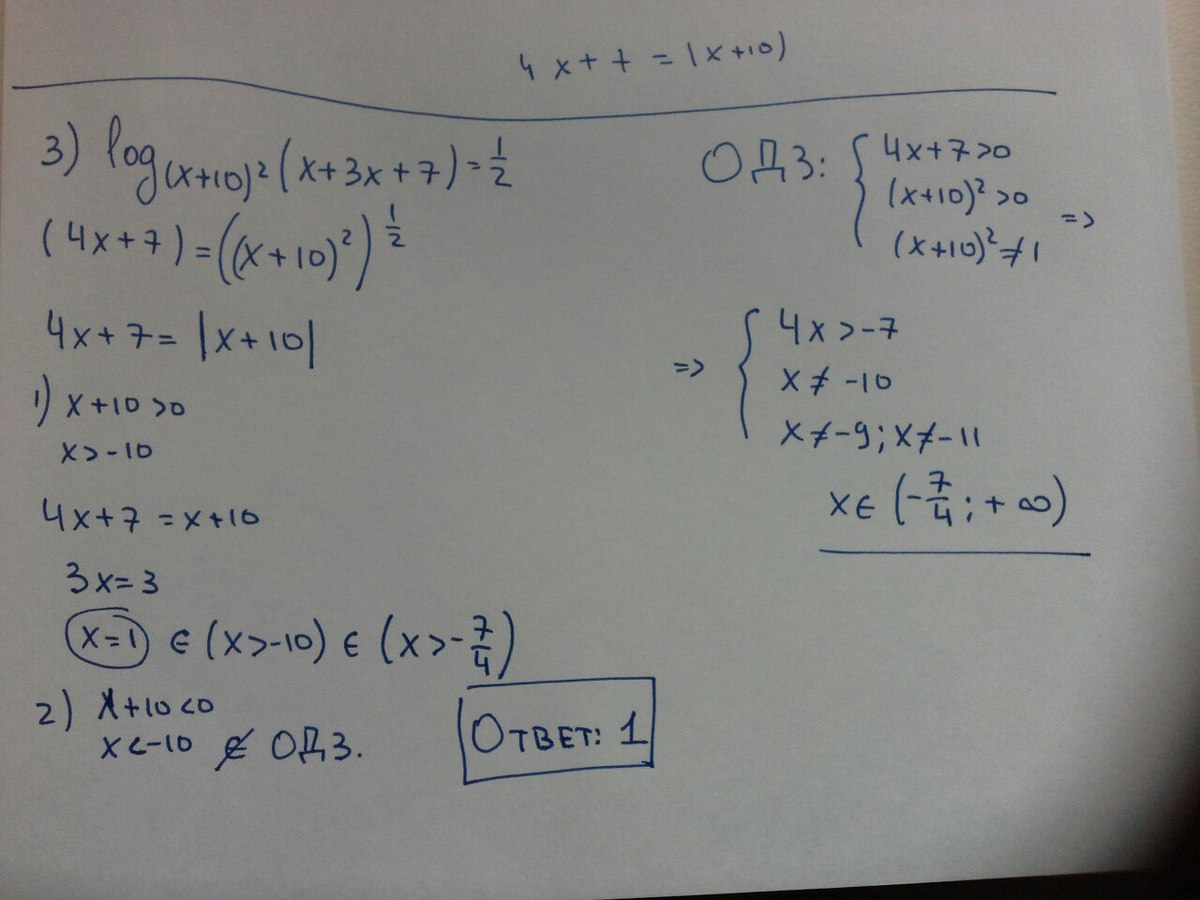 4x+7=|x+10)
3) log_{(x+10)^2}(x+3x+7)=\frac{1}{2}
(4x+7)=((x+10)^2)^{\frac{1}{2}}
4x+7=|x+10|
1) x+10>0
x>-10
4x+7=x+10
3x=3
x=1 ∈ (x>-10) ∈ (x>-\frac{7}{4})
2) x+10<0
x<-10 ∉ ОДЗ.
Ответ: 1
ОДЗ: { 4x+7>0
(x+10)^2>0
(x+10)^2≠1 =>
=> { 4x>-7
x≠-10
x≠-9; x≠-11
x∈(-\frac{7}{4}; +∞)